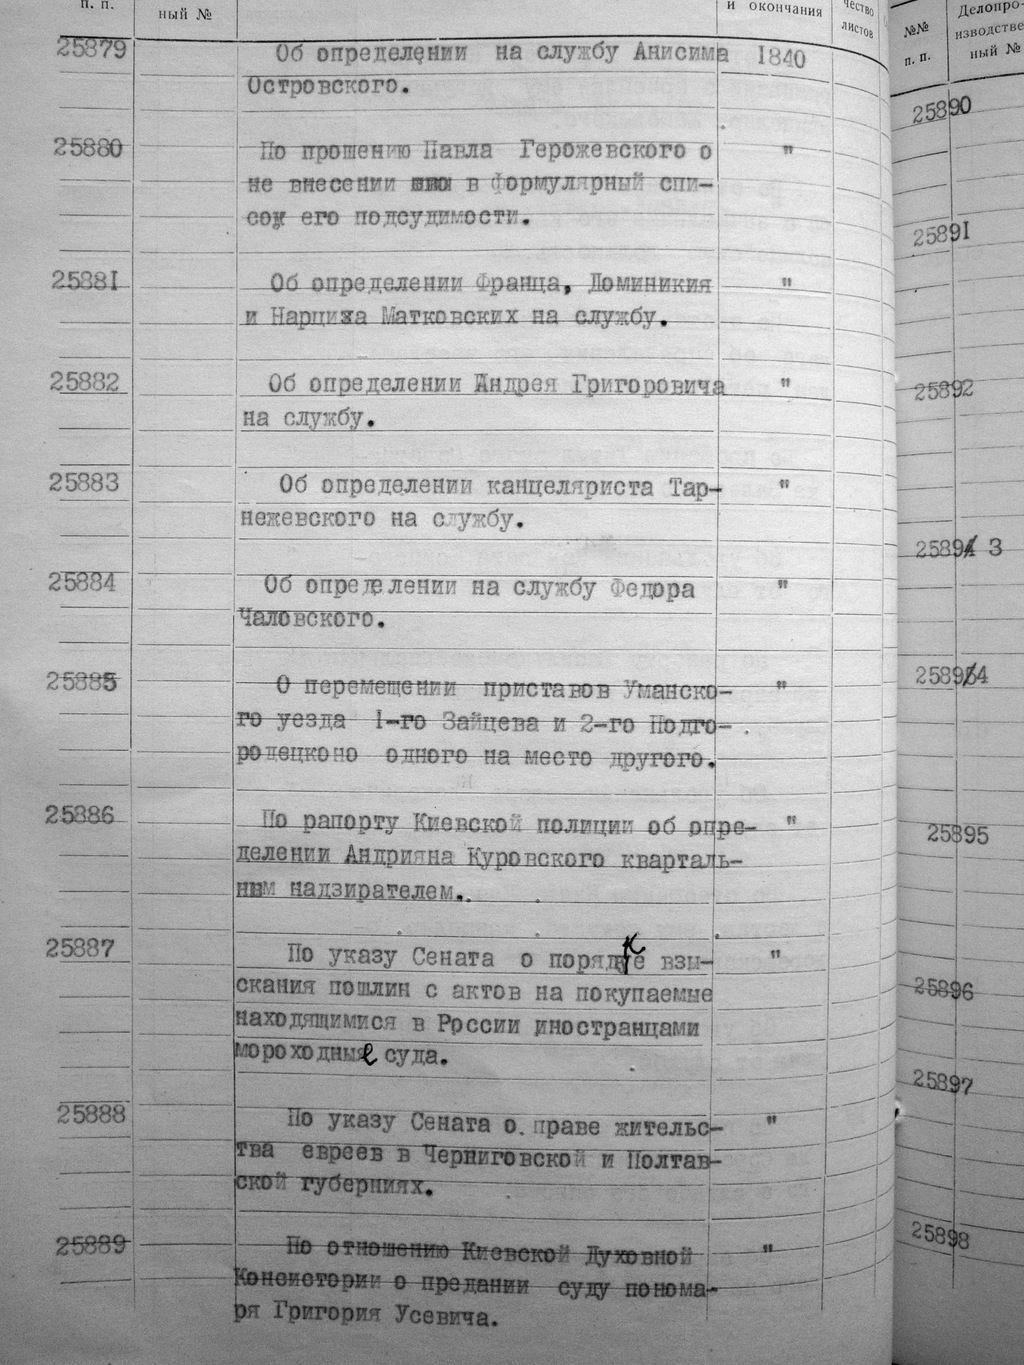 п. п.
ный №
и окончания
чество
листов
25879 Об определении на службу Анисима 1840
Островского.
25880 По прошению Павла Герожевского о "
не внесении в формулярный спи-
сок его подсудимости.
25881 Об определении Франца, Доминикия "
и Нарциза Матковских на службу.
25882 Об определении Андрея Григоровича "
на службу.
25883 Об определении канцеляриста Тар- "
нежевского на службу.
25884 Об определении на службу Федора "
Чаловского.
25885 О перемещении приставов Уманско- "
го уезда 1-го Зайцева и 2-го Подго-
родецконо одного на место другого.
25886 По рапорту Киевской полиции об опре- "
делении Андрияна Куровского кварталь-
ным надзирателем.
25887 По указу Сената о порядке взы- "
скания пошлин с актов на покупаемые
находящимися в России иностранцами
мороходные суда.
25888 По указу Сената о праве жительс- "
тва евреев в Черниговской и Полтав-
ской губерниях.
25889 По отношению Киевской Духовной "
Консистории о предании суду понома-
ря Григория Усевича.
№№
п. п.
Делопро-
изводстве
ный №
25890
25891
25892
2589 3
2589 4
25895
25896
25897
25898